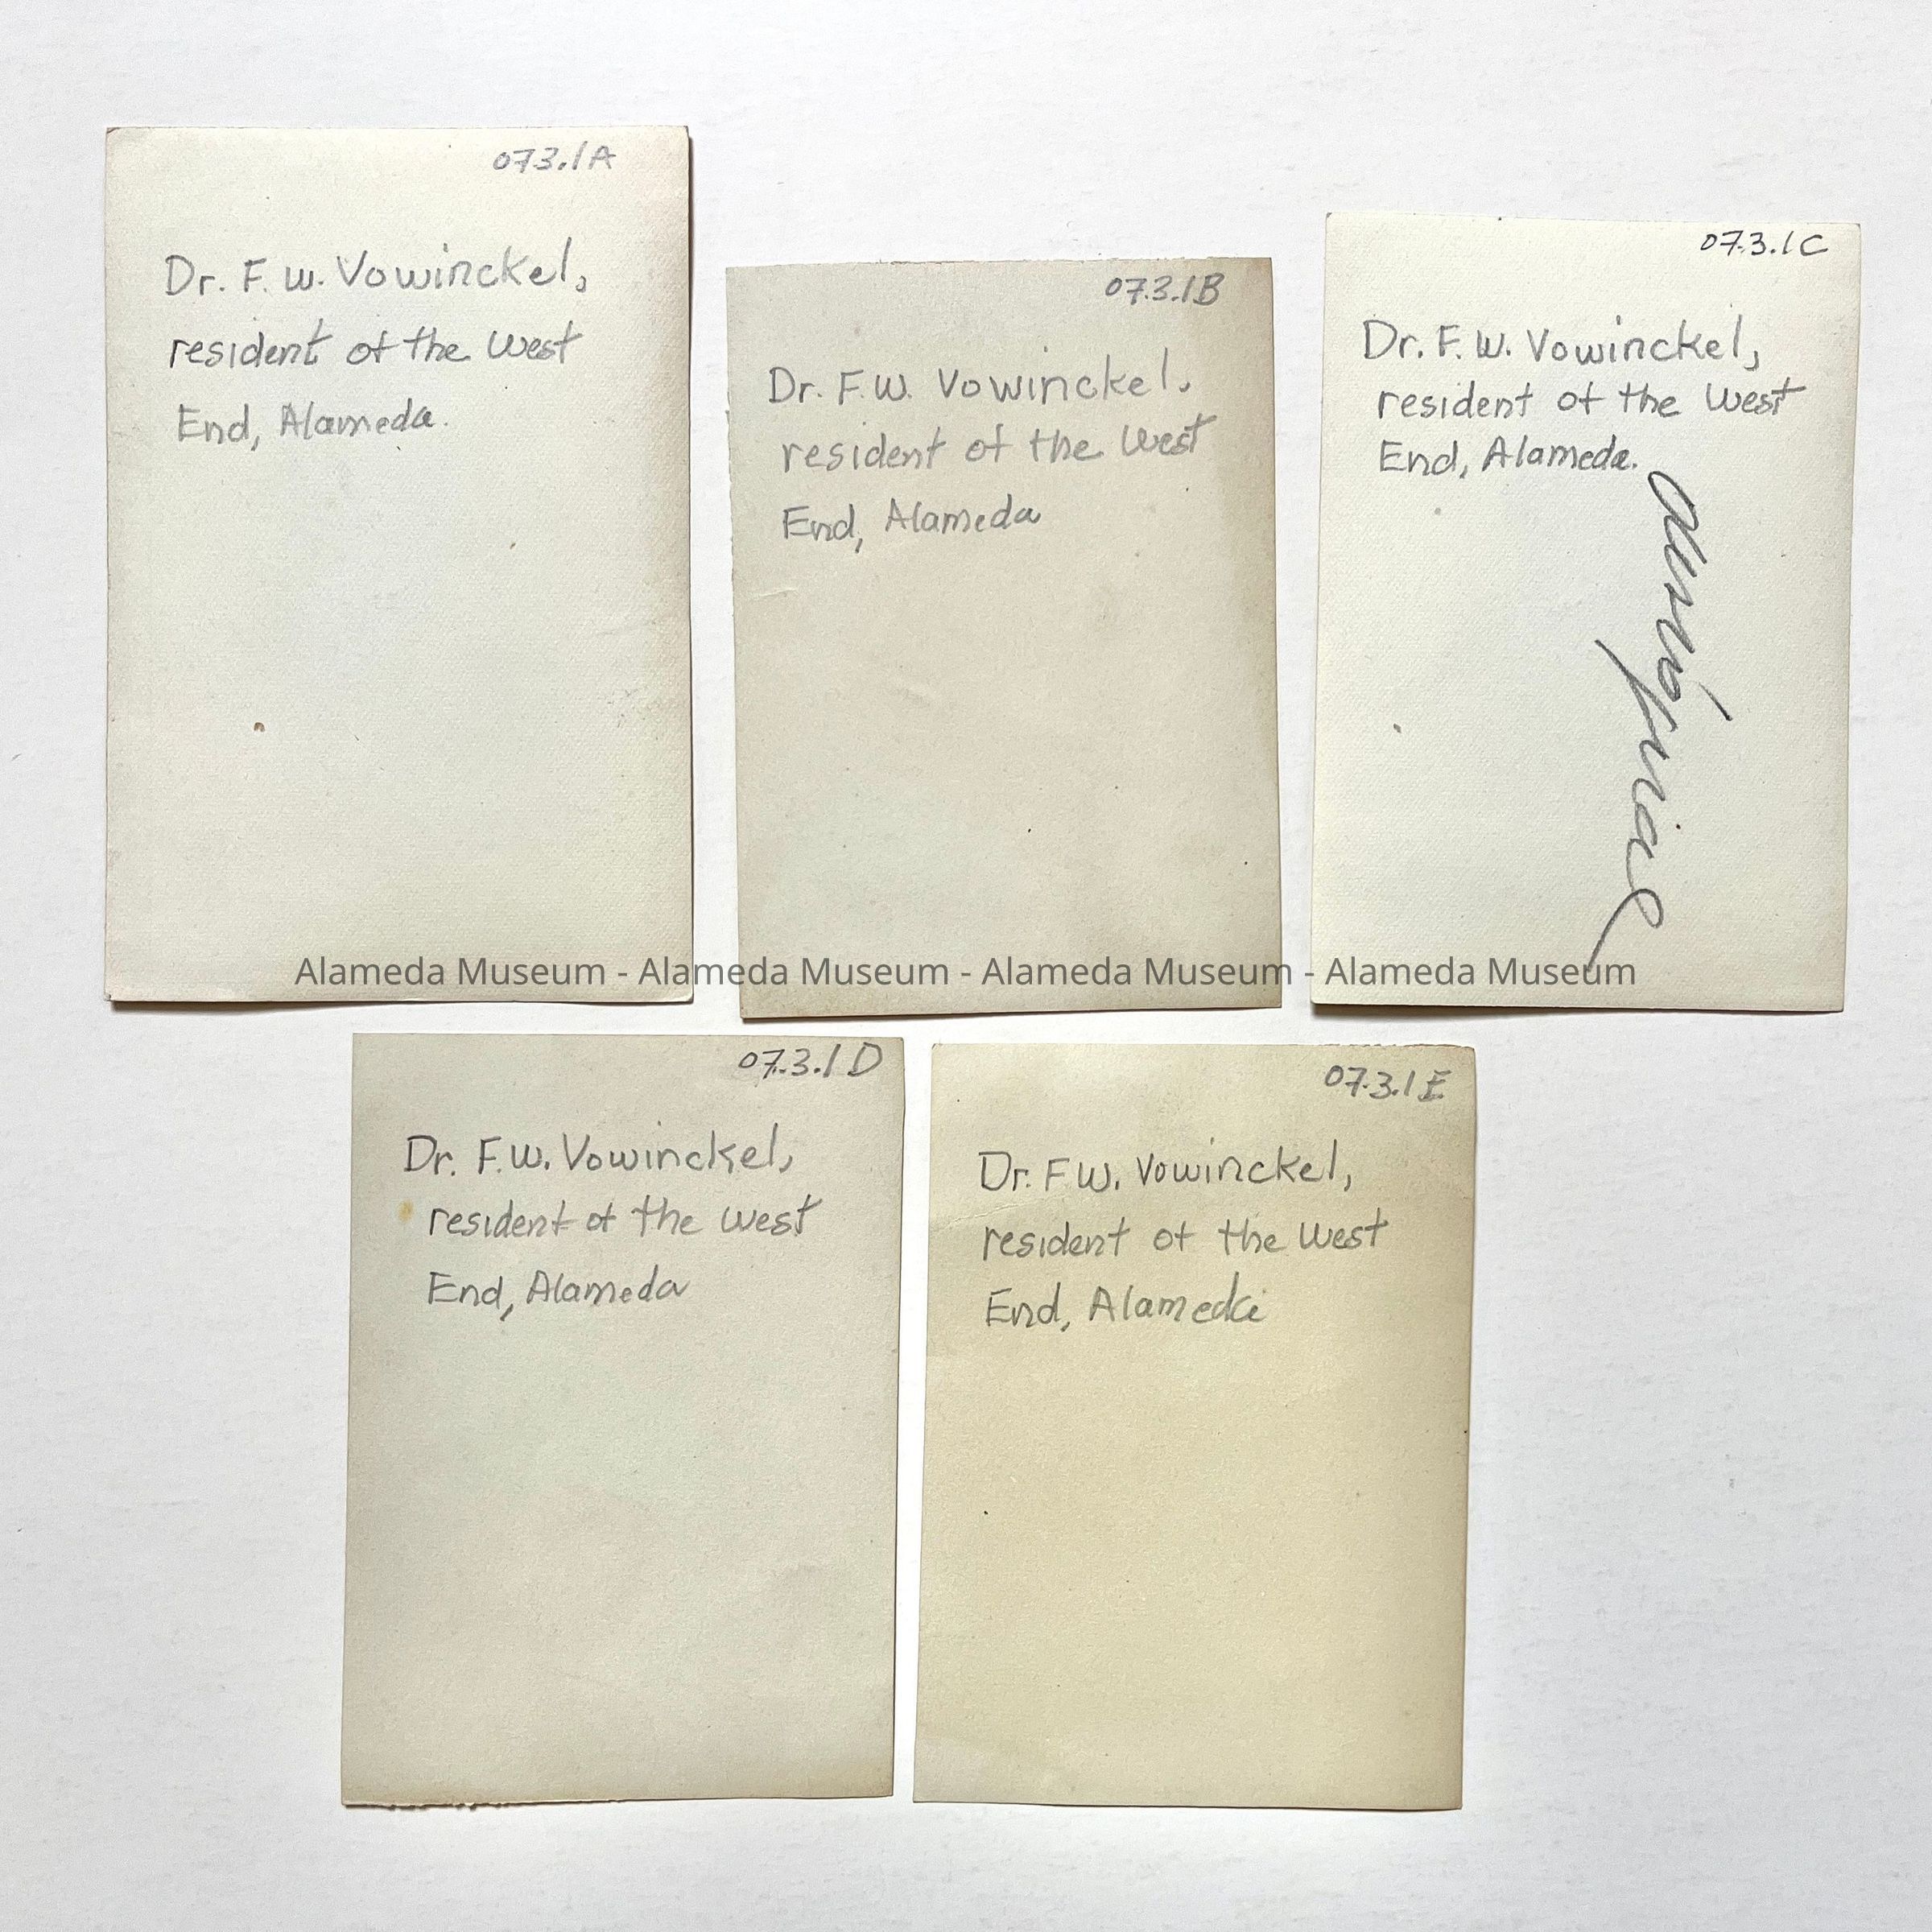 073.1A
Dr. F. W. Vowinckel,
resident of the West
End, Alameda.
07.3.1B
Dr. F.W. Vowinckel,
resident of the West
End, Alameda
07.3.1C
Dr. F. W. Vowinckel,
resident of the West
End, Alameda.
Alameda Museum - Alameda Museum - Alameda Museum - Alameda Museum
07.3.1D
Dr. F.W. Vowinckel,
resident of the West
End, Alameda
07.3.1E
Dr. F W. Vowinckel,
resident of the West
End, Alameda